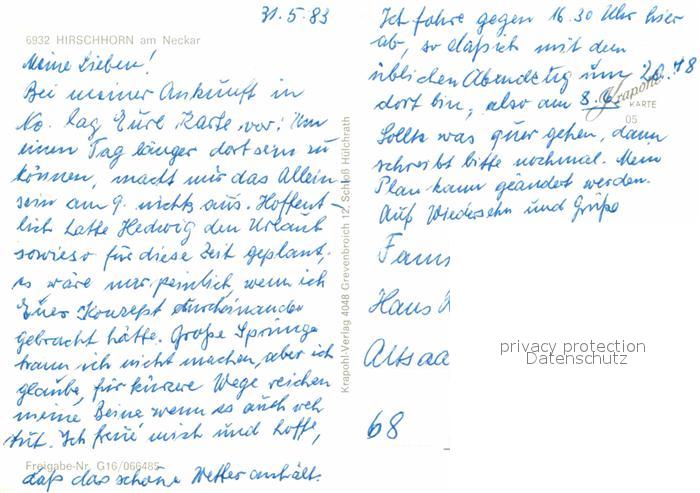 31.5.83
6932 HIRSCHHORN am Neckar
Meine Lieben!
Bei meiner Ankunft in
No. lag Eure Karte vor. Um
einen Tag länger dort sein zu
können, macht mir das Allein-
sein am 9. nichts aus. Hoffent-
lich hatte Hedwig den Urlaub
sowieso für diese Zeit geplant,
es wäre mir peinlich, wenn ich
Euer Konzept durcheinander
gebracht hätte. Große Sprünge
kann ich nicht machen, aber ich
glaube, für kürzere Wege reichen
meine Beine wenn es auch weh
tut. Ich freue mich und hoffe,
Freigabe-Nr. G16/066485
daß das schöne Wetter anhält.
Krapohl-Verlag 4048 Grevenbroich 12, Schloß Hülchrath
Ich fahre gegen 16.30 Uhr hier
ab, so daß ich mit dem
üblichen Abendzug um 20.18
dort bin, also am 8.6.
Krapohl
KARTE
05
Sollte was quer gehen, dann
schreibt bitte nochmal. Mein
Plan kann geändert werden.
Auf Wiedersehn und Grüße
Fam
Hans
Altsaa
68
privacy protection
Datenschutz